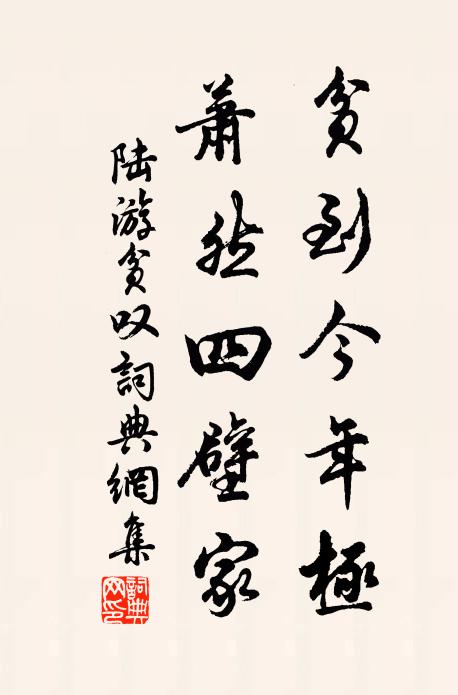 贫到今年極
蕭然四壁家
陆游贫叹詞典網集
詞典网印